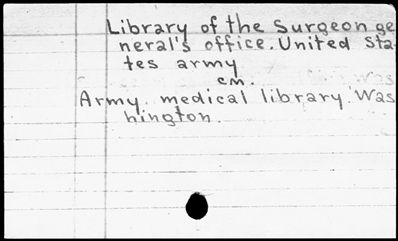 Library of the Surgeon ge
neral's office. United Sta-
tes army
см.
Army medical library. Was
hington.